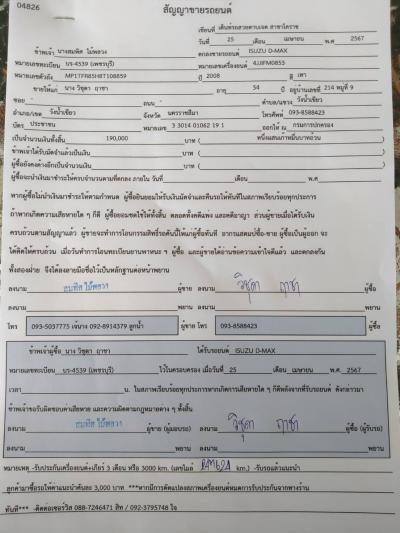 04826
สัญญาขายรถยนต์
เขียนที่ เต็นท์รถสวยตาบเจต สาขาโคราช
วันที่ 25 เดือน เมษายน พ.ศ 2567
ข้าพเจ้า นางสมพิศ ไม้พลวง ตกลงขายรถยนต์ ISUZU D-MAX
หมายเลขทะเบียน บร-4539 (เพชรบุรี) หมายเลขเครื่องยนต์ 4JJIFM0853
หมายเลขตัวถัง MP1TFR85H8T108859 ปี 2008 สี เทา
ขายให้แก่ นาง วิชุดา ฤาชา อายุ 54 ปี อยู่บ้านเลขที่ 214 หมู่ที่ 9
ซอย - ถนน - ตำบล/แขวง วังน้ำเขียว
อำเภอ/เขต วังน้ำเขียว จังหวัด นครราชสีมา โทรศัพท์ 093-8588423
บัตร ประชาชน หมายเลข 3 3014 01062 19 1 ออกให้ ณ กรมการปกครอง
เป็นจำนวนเงินทั้งสิ้น 190,000 บาท ( หนึ่งแสนเก้าหมื่นบาทถ้วน )
ข้าพเจ้าได้รับมัดจำแล้วเป็นเงิน บาท ( )
ผู้ซื้อยังคงค้างอีกเป็นจำนวนเงิน บาท ( )
ผู้ซื้อจะนำเงินมาชำระให้ครบจำนวนตามที่ตกลง ภายใน วันที่ เดือน พ.ศ
หากผู้ซื้อไม่นำเงินมาชำระให้ตามกำหนด ผู้ซื้อยินยอมให้ริบเงินมัดจำและคืนรถให้ทันทีในสภาพเรียบร้อยทุกประการ
ถ้าหากเกิดความเสียหายใด ๆ ก็ดี ผู้ซื้อยอมชดใช้ให้ทั้งสิ้น ตลอดทั้งคดีแพ่ง และคดีอาญา ส่วนผู้ขายเมื่อได้รับเงิน
ครบถ้วนตามสัญญาแล้ว ผู้ขายจะทำการโอนกรรมสิทธิ์รถคันนี้ให้แก่ผู้ซื้อทันที อากรแสตมป์ซื้อ-ขาย ผู้ซื้อเป็นผู้ออก จะ
ได้คิดให้ครบถ้วน เมื่อวันทำการโอนทะเบียนยานพาหนะ ฯ ผู้ซื้อ และผู้ขายได้อ่านข้อความเข้าใจดีแล้ว และตกลงกัน
ทั้งสองฝ่าย จึงได้ลงลายมือชื่อไว้เป็นหลักฐานต่อหน้าพยาน
ลงนาม ผู้ขาย ลงนาม วิชุดา ฤาชา ผู้ซื้อ
ลงนาม พยาน ลงนาม พยาน
โทร 093-5037775 เจ้นาง 092-8914379 ลูกน้ำ ผู้ขาย โทร 093-8588423 ผู้ซื้อ
ข้าพเจ้าผู้ซื้อ นาง วิชุดา ฤาชา ได้รับรถยนต์ ISUZU D-MAX
หมายเลขทะเบียน บร-4539 (เพชรบุรี) ไว้ในครอบครอง เมื่อวันที่ 25 เดือน เมษายน พ.ศ. 2567
เวลา น. ในสภาพเรียบร้อยทุกประการหากเกิดการเสียหายใด ๆ ก็ดีหลังจากที่รับรถยนต์ ดังกล่าวมา
ข้าพเจ้าขอรับผิดชอบค่าเสียหาย และความผิดตามกฎหมายต่าง ๆ ทั้งสิ้น
ลงนาม ผู้ขาย (ผู้มอบรถ) ลงนาม วิชุดา ฤาชา ผู้ซื้อ (ผู้รับรถ)
ลงนาม พยาน ลงนาม พยาน
หมายเหตุ -รับประกันเครื่องยนต์+เกียร์ 3 เดือน หรือ 3000 km. (เลขไมล์ km.) -รับรถแล้วแนะนำ
ลูกค้ามาซื้อรถให้ค่าแนะนำคันละ 3,000 บาท ***หากมีการดัดแปลงสภาพเครื่องยนต์หมดการรับประกันจากทางร้าน
ทันที*** -ติดต่อเซอร์วิส 088-7246471 สิท / 092-3795748 ใจ